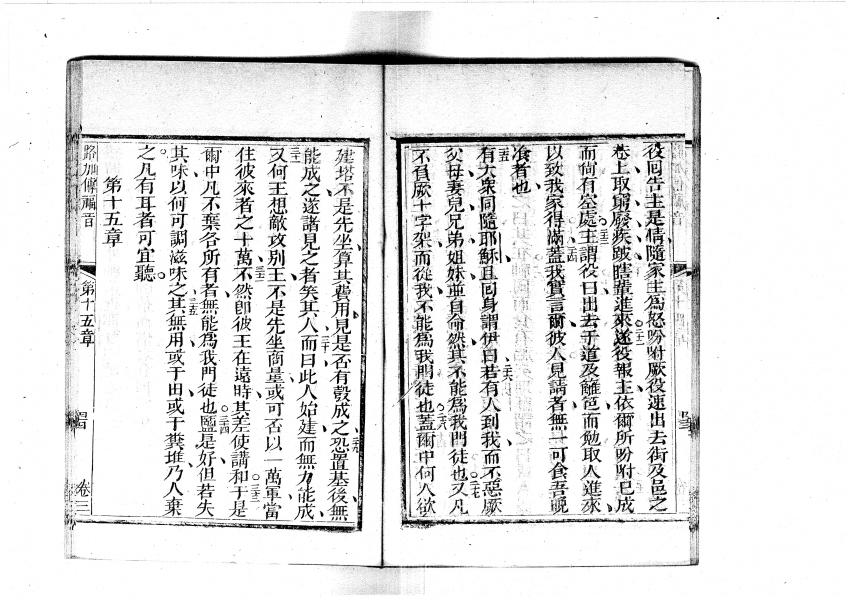 役回告主是情隨家主為怒吩咐厥役速出去街及邑之
巷上取窮廢疾跛瞎輩進來遂役報主依爾所吩咐已成
而尚有空處主謂役曰出去于道及籬笆而勉取人進來
以致我家得滿蓋我實言爾彼人見請者無一可食吾晚
飡者也
有大眾同隨耶穌且回身謂伊曰若有人到我而不惡厥
父母妻兒兄弟姐妹並自命然其不能為我門徒也又凡
不負厥十字架而從我不能為我門徒也蓋爾中何人欲
建塔不是先坐算其費用見是否有彀成之恐置基後無
能成之遂諸見之者笑其人而曰此人始建而無力能成
又何王想敵攻別王不是先坐商量或可否以一萬軍當
住彼來者之十萬不然即彼王在遠時其差使講和于是
爾中凡不棄各所有者無能為我門徒也鹽是好但若失
其味以何可調滋味之其無用或于田或于糞堆乃人棄
之凡有耳者可宜聽
第十五章
路加傳福音 第十五章 卷三